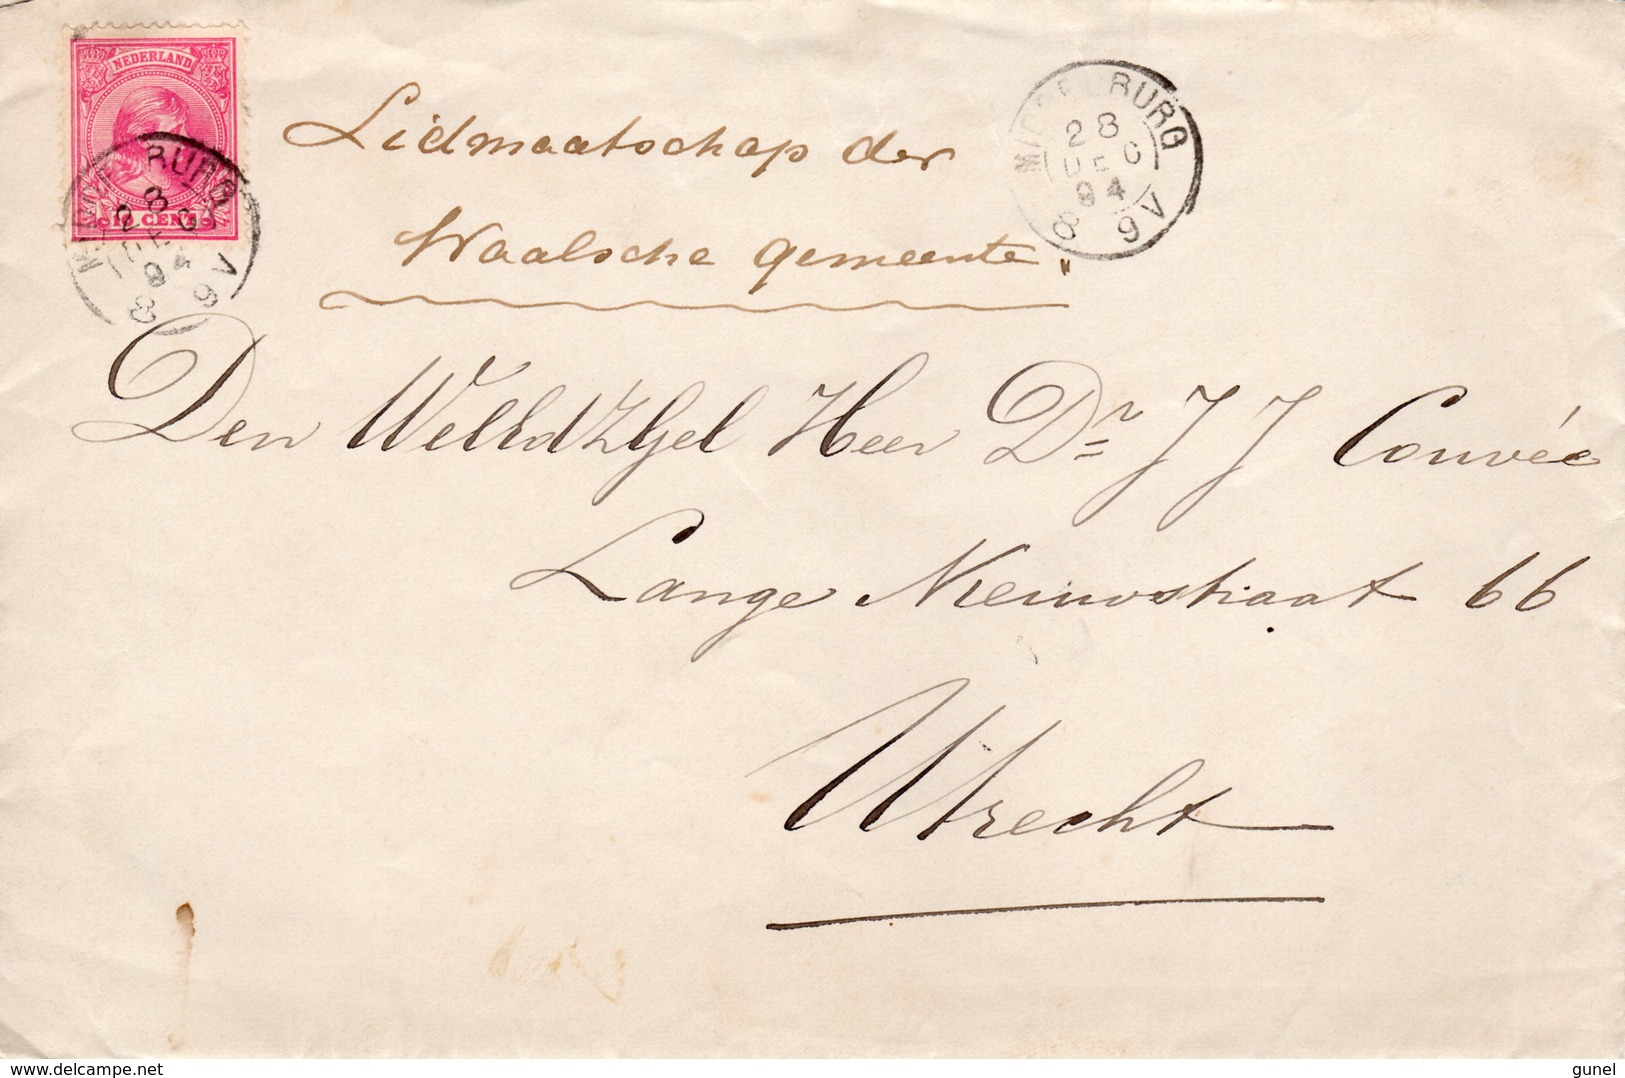 NEDERLAND
10 CENT
MIDDELBURG
28
DEC
94
8 9V
MIDDELBURG
28
DEC
94
8 9V
Lidmaatschap der
Waalsche gemeente"
Den WelEdZGel Heer Dr J J Couvée
Lange Nieuwstraat 66
Utrecht
gunel